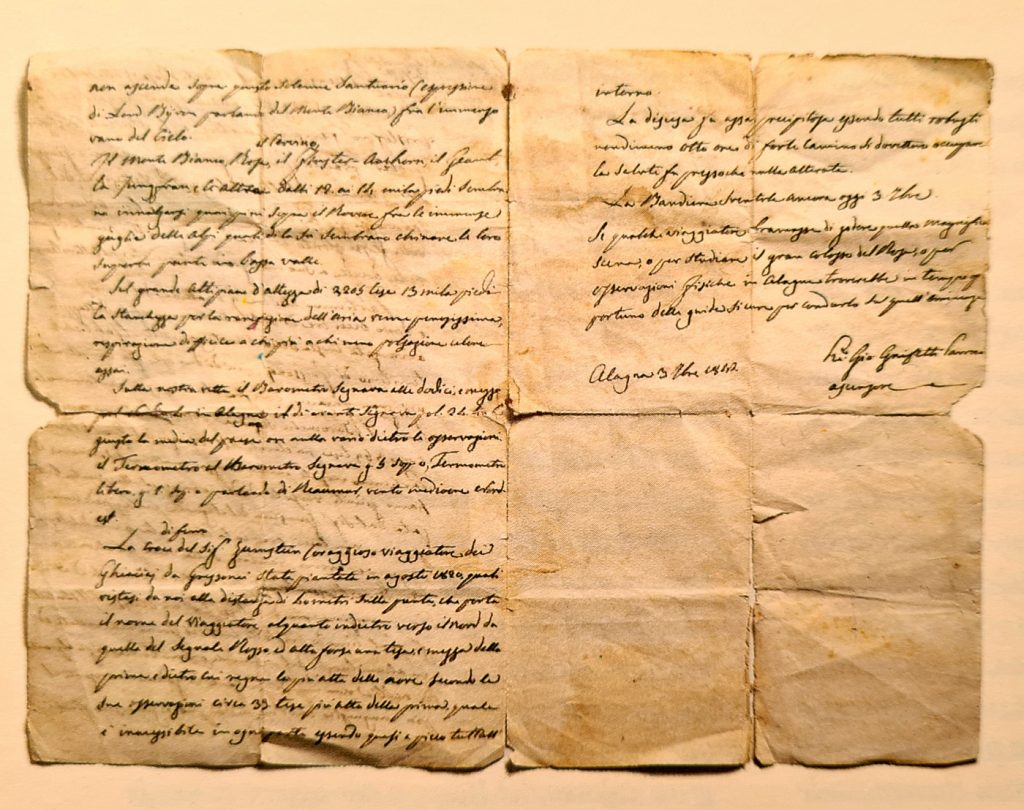 non ascende sopra questo solenne Santuario (espressione
di Lord Byron parlando del Monte Bianco) fra l'immenso
vano del Cielo.
il Cervino
Il Monte Bianco, Rosa, il Finster-Aarhorn, il
la Jungfrau, e le altre dalli 12. ai 14. mila piedi sembra
no innalzarsi sopra il fra le immense
guglie delle Alpi quali di la si sembrano chinare le loro
superbe punte in bassa valle.
Sul grande Altipiano d'altezza di 2205 tese 13 mila piedi
la stanchezza per la rarefazione dell'aria venne penosissima,
respirazione difficile a chi più a chi meno polsazione celere
assai.
Sulla nostra vetta il Barometro segnava alle dodici e mezzo
in Alagna il di avanti segnava pol. 24. l.
giusto la media del paese ora nulla variò dietro le osservazioni.
il Termometro al Barometro segnava g. 5 sopra 0, Termometro
libero g. a parlando di Reaumur, vento mediocre e Nord
est.
di ferro
La croce del Sig.r Zumstein coraggioso viaggiatore dei
Ghiacciaj da Gressoney stata piantata in agosto 1820, quale
vistasi da noi alla distanza di sulla punta, che porta
il nome del Viaggiatore, alquanto indietro verso il Nord da
quella del Segnale Rosso ed alta forse una tesa, e mezza della
prima, e dietro lui regna la più alta delle nove secondo le
sue osservazioni circa 33 tese più alta della prima, quale
è inaccessibile in ogni parte essendo quasi a picco tutt'all'
intorno.
La discesa fu assai precipitosa essendo tutti robusti
nondimeno otto ore di forte cammino si dovettero occupare
la salute fu pressochè nulla alterata.
La Bandiera sventola ancora oggi 3 7bre.
Se qualche viaggiatore bramasse di godere quella meravigliosa
scena, o per studiare il gran colosso del Rosa, o per
osservazioni fisiche in Alagna troverebbe in tempo op
portuno delle guide sicure per condurlo su quell'
Alagna 3 7bre 1842
Gio Gnifetti Parroco